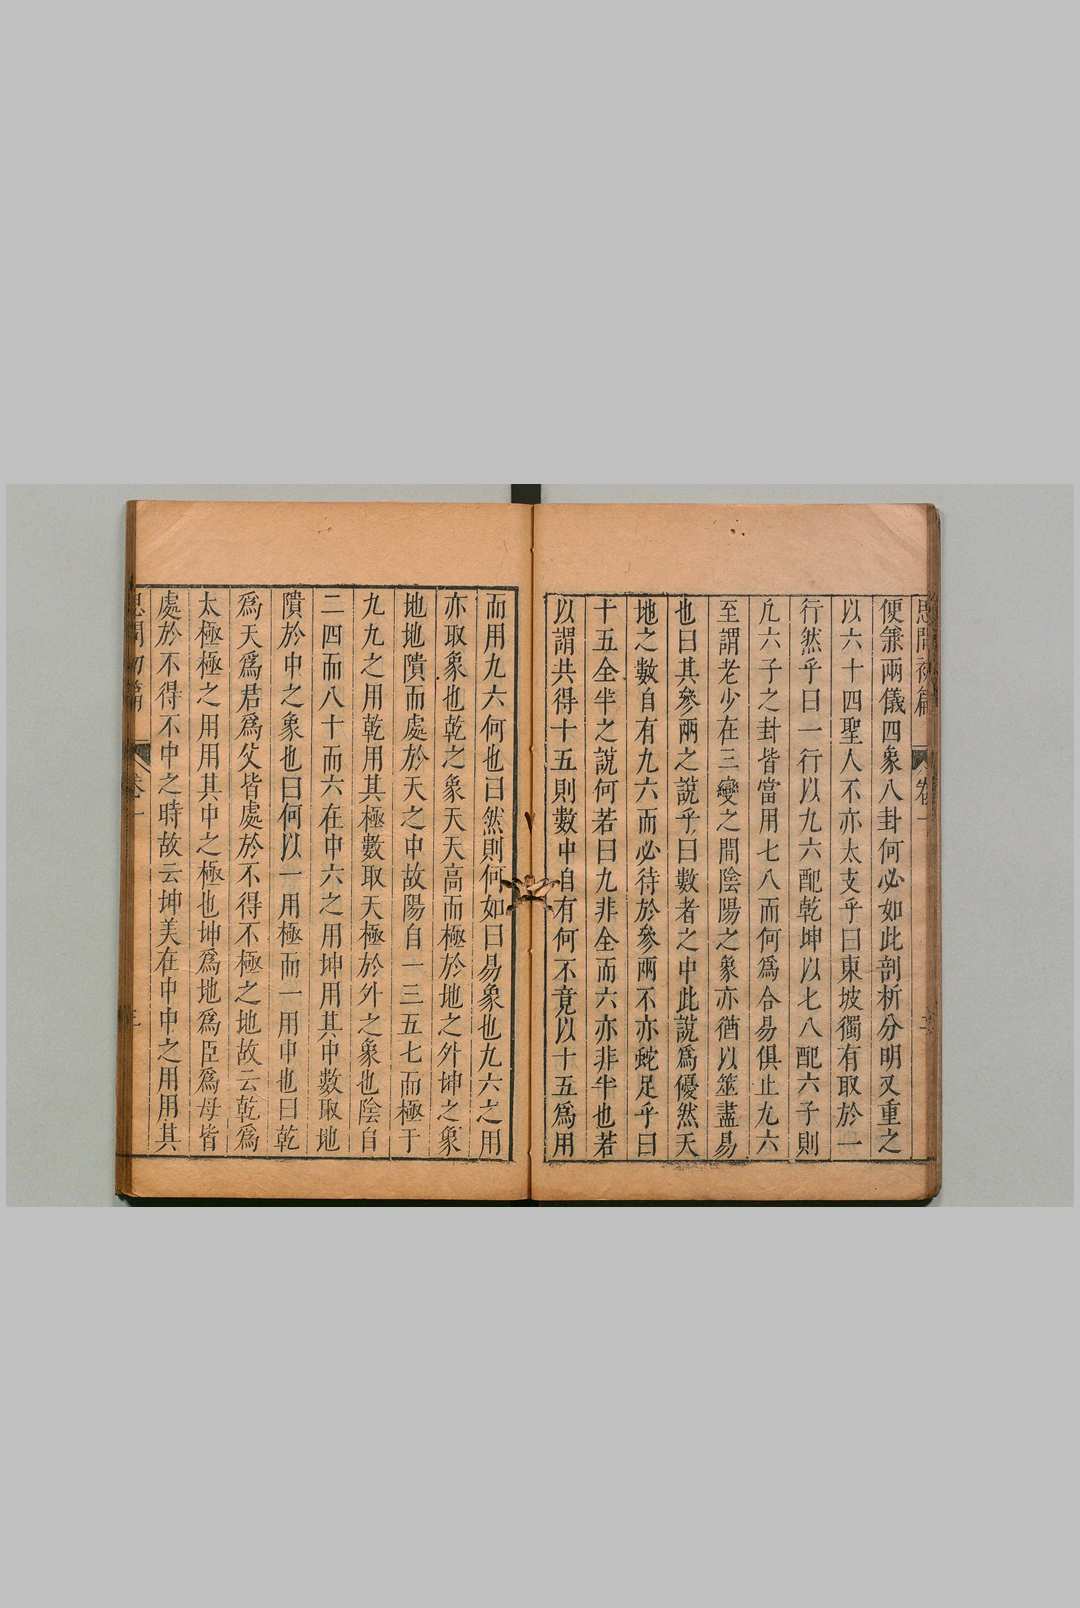 思問初篇 卷一
便兼兩儀四象八卦何必如此剖析分明又重之
以六十四聖人不亦太支乎曰東坡獨有取於一
行然乎曰一行以九六配乾坤以七八配六子則
凡六子之卦皆當用七八而何爲合易俱止九六
至謂老少在三變之間陰陽之象亦猶以筮盡易
也曰其參兩之說乎曰數者之中此說爲優然天
地之數自有九六而必待於參兩不亦蛇足乎曰
十五全半之說何若曰九非全而六亦非半也若
以謂共得十五則數中自有何不竟以十五爲用
而用九六何也曰然則何如曰易象也九六之用
亦取象也乾之象天天高而極於地之外坤之象
地地隤而處於天之中故陽自一三五七而極于
九九之用乾用其極數取天極於外之象也陰自
二四而八十而六在中六之用坤用其中數取地
隤於中之象也曰何以一用極而一用中也曰乾
爲天爲君爲父皆處於不得不極之地故云乾爲
太極極之用用其中之極也坤爲地爲臣爲母皆
處於不得不中之時故云坤美在中中之用用其
思問初篇 卷一 三